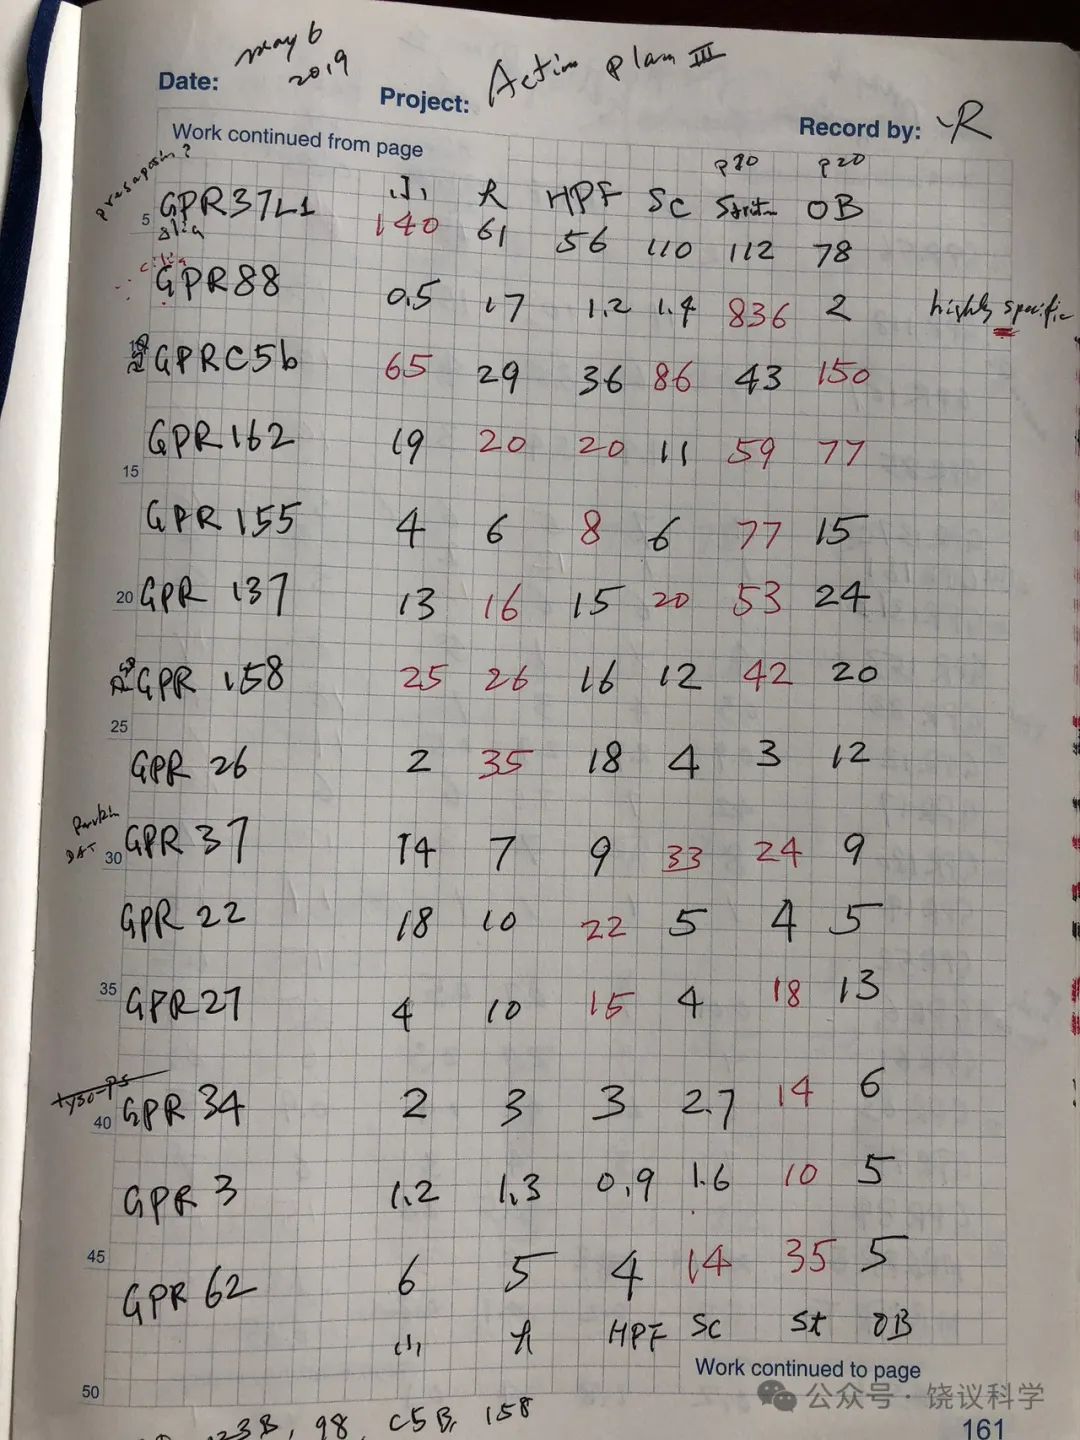 Date: May 6
2019
Project: Action plan III
Record by: YR
Work continued from page
P20 P20
小 大 HPF SC Striatum OB
5 GPR37L1 140 61 56 110 112 78
glia
cilia
GPR88 0.5 17 1.2 1.4 836 2 highly specific
GPRC5b 65 29 36 86 43 150
GPR162 19 20 20 11 59 77
15
GPR155 4 6 8 6 77 15
20 GPR 137 13 16 15 20 53 24
GPR 158 25 26 16 12 42 20
25
GPR 26 2 35 18 4 3 12
Parkin
30 GPR 37 14 7 9 33 24 9
GPR 22 18 10 22 5 4 5
35 GPR27 4 10 15 4 18 13
lyso-PS
40 GPR 34 2 3 3 2.7 14 6
GPR 3 1.2 1.3 0.9 1.6 10 5
45
GPR 62 6 5 4 14 35 5
小 大 HPF SC St OB
Work continued to page
50
98, C5B, 158
公众号 · 饶议科学
161